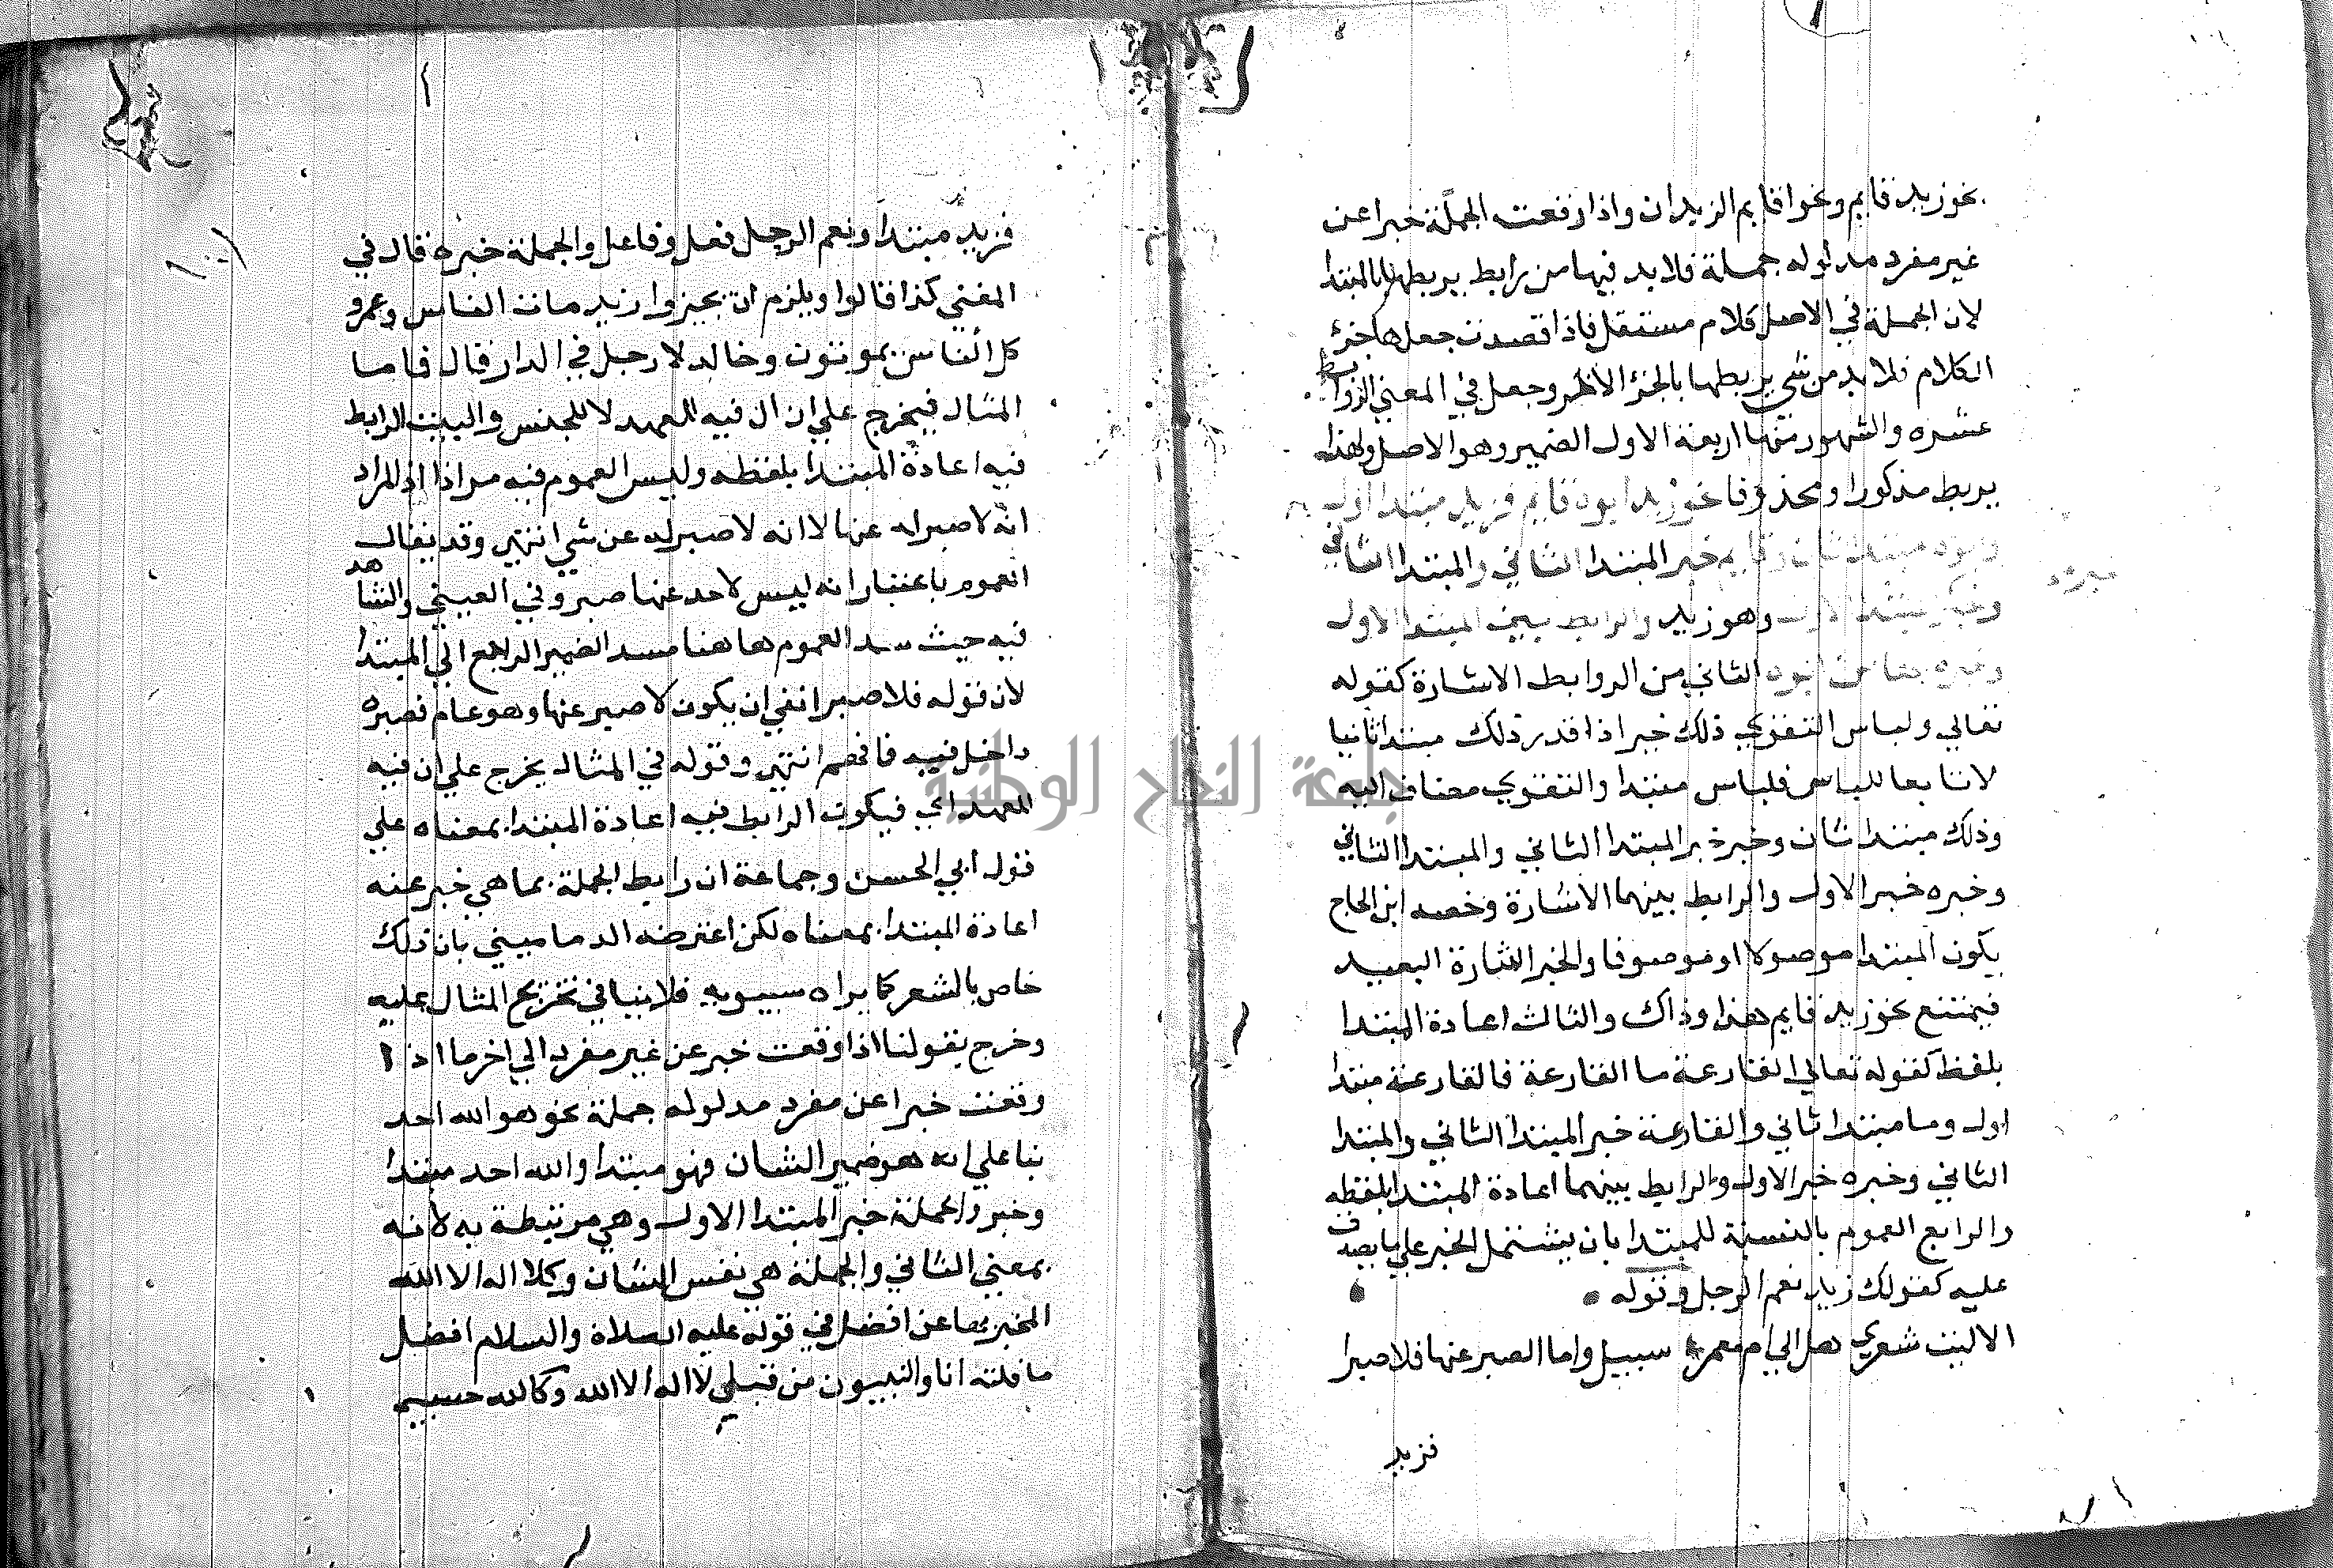 نحو زيد قايم ونحو اقايم الزيدان واذا رفعت الجملة خبرا عن
غير مفرد مدلوله جملة فلا بد فيها من رابط يربطها بالمبتدا
لان الجملة في الاصل كلام مستقل فاذا قصدت جعلها جزء
الكلام فلا بد من شي يربطها بالجزء الاخر وجعل في المغني الروابط
عشره والشهور منها اربعة الاول الضمير وهو الاصل ولهذا
يربط مذكورا ومحذوفا نحو زيد ابوه قايم فزيد مبتدا اول
وابوه مبتدا ثان وقايم خبر المبتدا الثاني والمبتدا الثاني
وخبره
خبر المبتدا الاول وهو زيد والرابط بين المبتدا الاول
وخبره الثاني من الروابط الاشارة كقوله
تعالي ولباس التقوي ذلك خبر اذا قدر ذلك مبتدا ثانيا
لا تابعا للباس فلباس مبتدا والتقوي مضاف اليه
وذلك مبتدا ثان وخير خبر المبتدا الثاني والمبتدا الثاني
وخبره خبر الاول والرابط بينهما الاشارة وخصه ابن الحاج
يكون المبتدا موصولا او موصوفا والخبر اشارة البعيد
فيمتنع نحو زيد قايم هذا وذاك والثالث اعادة المبتدا
بلفظ كقوله تعالي القارعة ما القارعة فالقارعة مبتدا
اول وما مبتدا ثاني والقارعة خبر المبتدا الثاني والمبتدا
الثاني وخبره خبر الاول والرابط بينهما اعادة المبتدا بلفظه
والرابع العموم بالنسبة للمبتدا بان يشتمل الخبر علي ما يصدق
عليه كقولك زيد نعم الرجل وقوله
الا ليت شعري هل الي ام معمر سبيل واما الصبر عنها فلا صبرا
فزيد
فزيد مبتدا ونعم الرجل فعل وفاعل والجملة خبره قال في
المغني كذا قالوا ويلزم ان يجيزوا زيد مات الناس وعمرو
كل الناس يموتون وخالد لا رجل في الدار قال فاما
المثال فيخرج علي ان ال فيه للعهد لا للجنس والبيت الرابط
فيه اعادة المبتدا بلفظه وليس العموم فيه مرادا اذ المراد
انه لا صبر له عنها لا انه لا صبر له عن شي انتهي وقد يقال
العموم باعتبار انه ليس لاحد عنها صبر وفي العيني والشاهد
فيه حيث سد العموم هاهنا مسد الضمير الراجع الي المبتدا
لان قوله فلا صبرا نفي ان يكون لا صبر عنها وهو عام فصبره
داخل فيه فافهم انتهي وقوله في المثال يخرج علي ان فيه
للعهد اي فيكون الرابط فيه اعادة المبتدا بمعناه علي
قول ابي الحسن وجماعة ان رابط الجملة بما هي خبر عنه
اعادة المبتدا بمعناه لكن اعترضه الدماميني بان ذلك
خاص بالشعر كما يراه سيبويه فلا ينبافي تخريج المثال عليه
وخرج بقولنا اذا وقعت خبر عن غير مفرد الي اخر ما اذا
وقعت خبرا عن مفرد مدلوله جملة نحو هو الله احد
بنا علي انه هو ضمير الشان فهو مبتدا والله احد مبتدا
وخبر والجملة خبر المبتدا الاول وهي مرتبطة به لانه
بمعني الثاني والجملة هي نفس الشان وكلا اله الا الله
المخبر بها عن افضل في قوله عليه الصلاة والسلام افضل
ما قلته انا والنبيون من قبلي لا اله الا الله وكالله حسبي
جامعة النجاح الوطنية